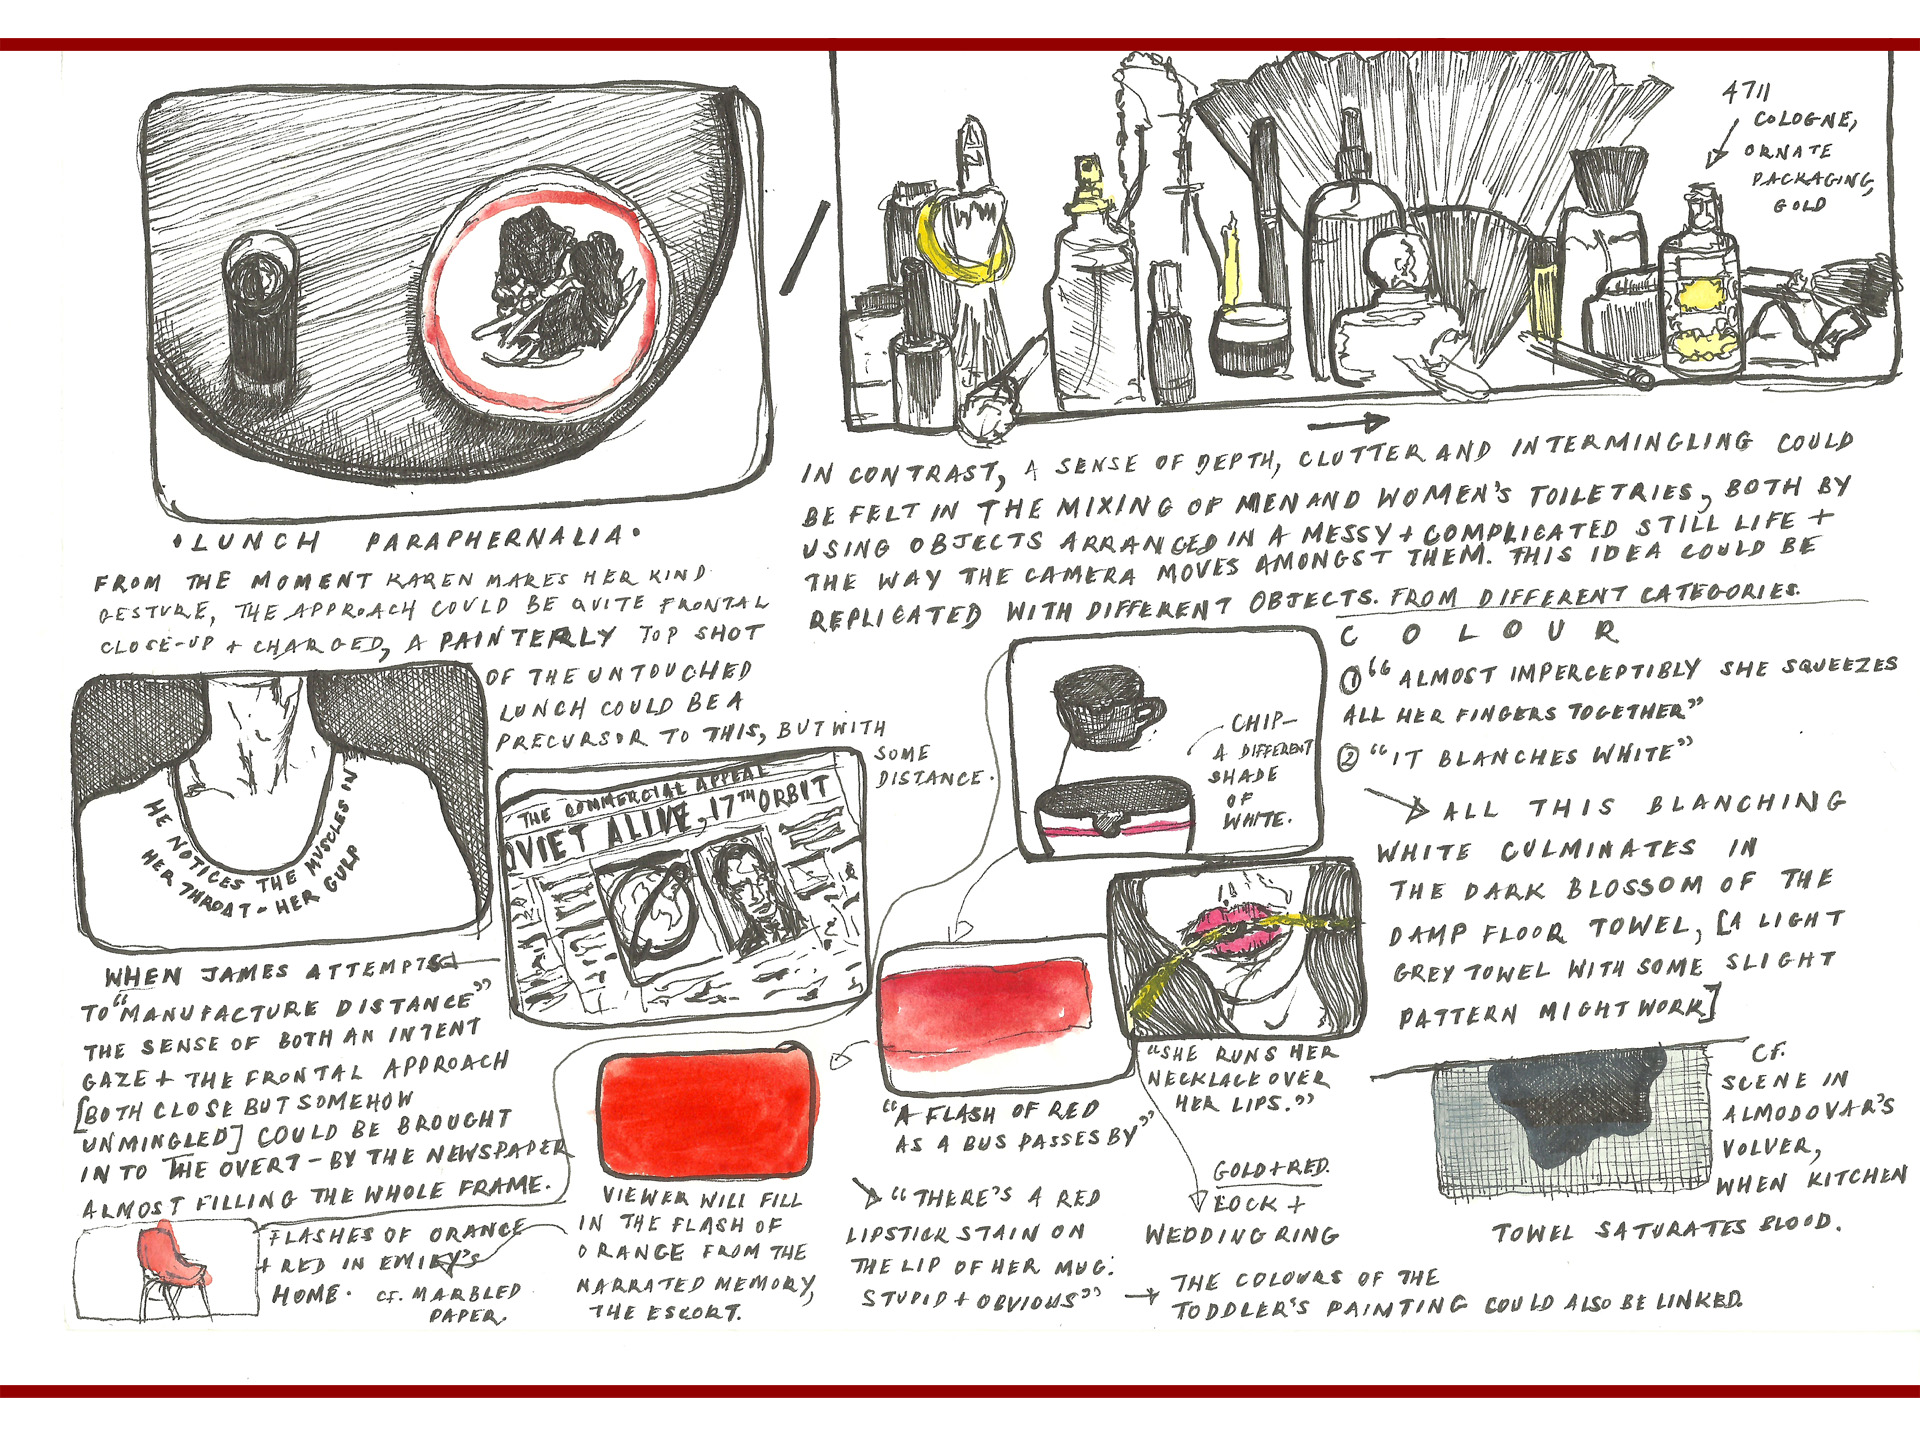 4711
COLOGNE,
ORNATE
PACKAGING,
GOLD
•LUNCH PARAPHERNALIA•
FROM THE MOMENT KAREN MAKES HER KIND
GESTURE, THE APPROACH COULD BE QUITE FRONTAL
CLOSE-UP + CHARGED, A PAINTERLY TOP SHOT
OF THE UNTOUCHED
LUNCH COULD BE A
PRECURSOR TO THIS, BUT WITH
SOME
DISTANCE.
IN CONTRAST, A SENSE OF DEPTH, CLUTTER AND INTERMINGLING COULD
BE FELT IN THE MIXING OF MEN AND WOMEN'S TOILETRIES, BOTH BY
USING OBJECTS ARRANGED IN A MESSY + COMPLICATED STILL LIFE +
THE WAY THE CAMERA MOVES AMONGST THEM. THIS IDEA COULD BE
REPLICATED WITH DIFFERENT OBJECTS. FROM DIFFERENT CATEGORIES.
HE NOTICES THE MUSCLES IN
HER THROAT - HER GULP
THE COMMERCIAL APPEAL
OVIET ALIVE, 17TH ORBIT
WHEN JAMES ATTEMPTS
TO "MANUFACTURE DISTANCE"
THE SENSE OF BOTH AN INTENT
GAZE + THE FRONTAL APPROACH
[BOTH CLOSE BUT SOMEHOW
UNMINGLED] COULD BE BROUGHT
IN TO THE OVERT - BY THE NEWSPAPER
ALMOST FILLING THE WHOLE FRAME.
FLASHES OF ORANGE
+ RED IN EMILY'S
HOME. CF. MARBLED
PAPER.
VIEWER WILL FILL
IN THE FLASH OF
ORANGE FROM THE
NARRATED MEMORY,
THE ESCORT.
CHIP-
A DIFFERENT
SHADE
OF
WHITE.
"A FLASH OF RED
AS A BUS PASSES BY"
"THERE'S A RED
LIPSTICK STAIN ON
THE LIP OF HER MUG.
STUPID + OBVIOUS"
"SHE RUNS HER
NECKLACE OVER
HER LIPS."
GOLD + RED.
LOCK +
WEDDING RING
THE COLOURS OF THE
TODDLER'S PAINTING COULD ALSO BE LINKED.
COLOUR
① "ALMOST IMPERCEPTIBLY SHE SQUEEZES
ALL HER FINGERS TOGETHER"
② "IT BLANCHES WHITE"
ALL THIS BLANCHING
WHITE CULMINATES IN
THE DARK BLOSSOM OF THE
DAMP FLOOR TOWEL, [A LIGHT
GREY TOWEL WITH SOME SLIGHT
PATTERN MIGHT WORK]
CF.
SCENE IN
ALMODOVAR'S
VOLVER,
WHEN KITCHEN
TOWEL SATURATES BLOOD.